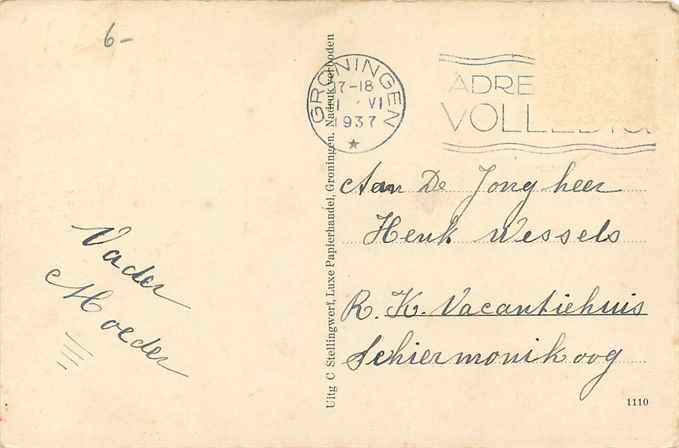 6-
GRONINGEN
17-18
1 VI
1937
ADRE
VOLLEDIG
Aan De Jongheer
Henk Wessels
R. K. Vacantiehuis
Schiermonikoog
Vader
Moeder
Uitg C Stellingwerf, Luxe Papierhandel, Groningen. Nadruk verboden
1110